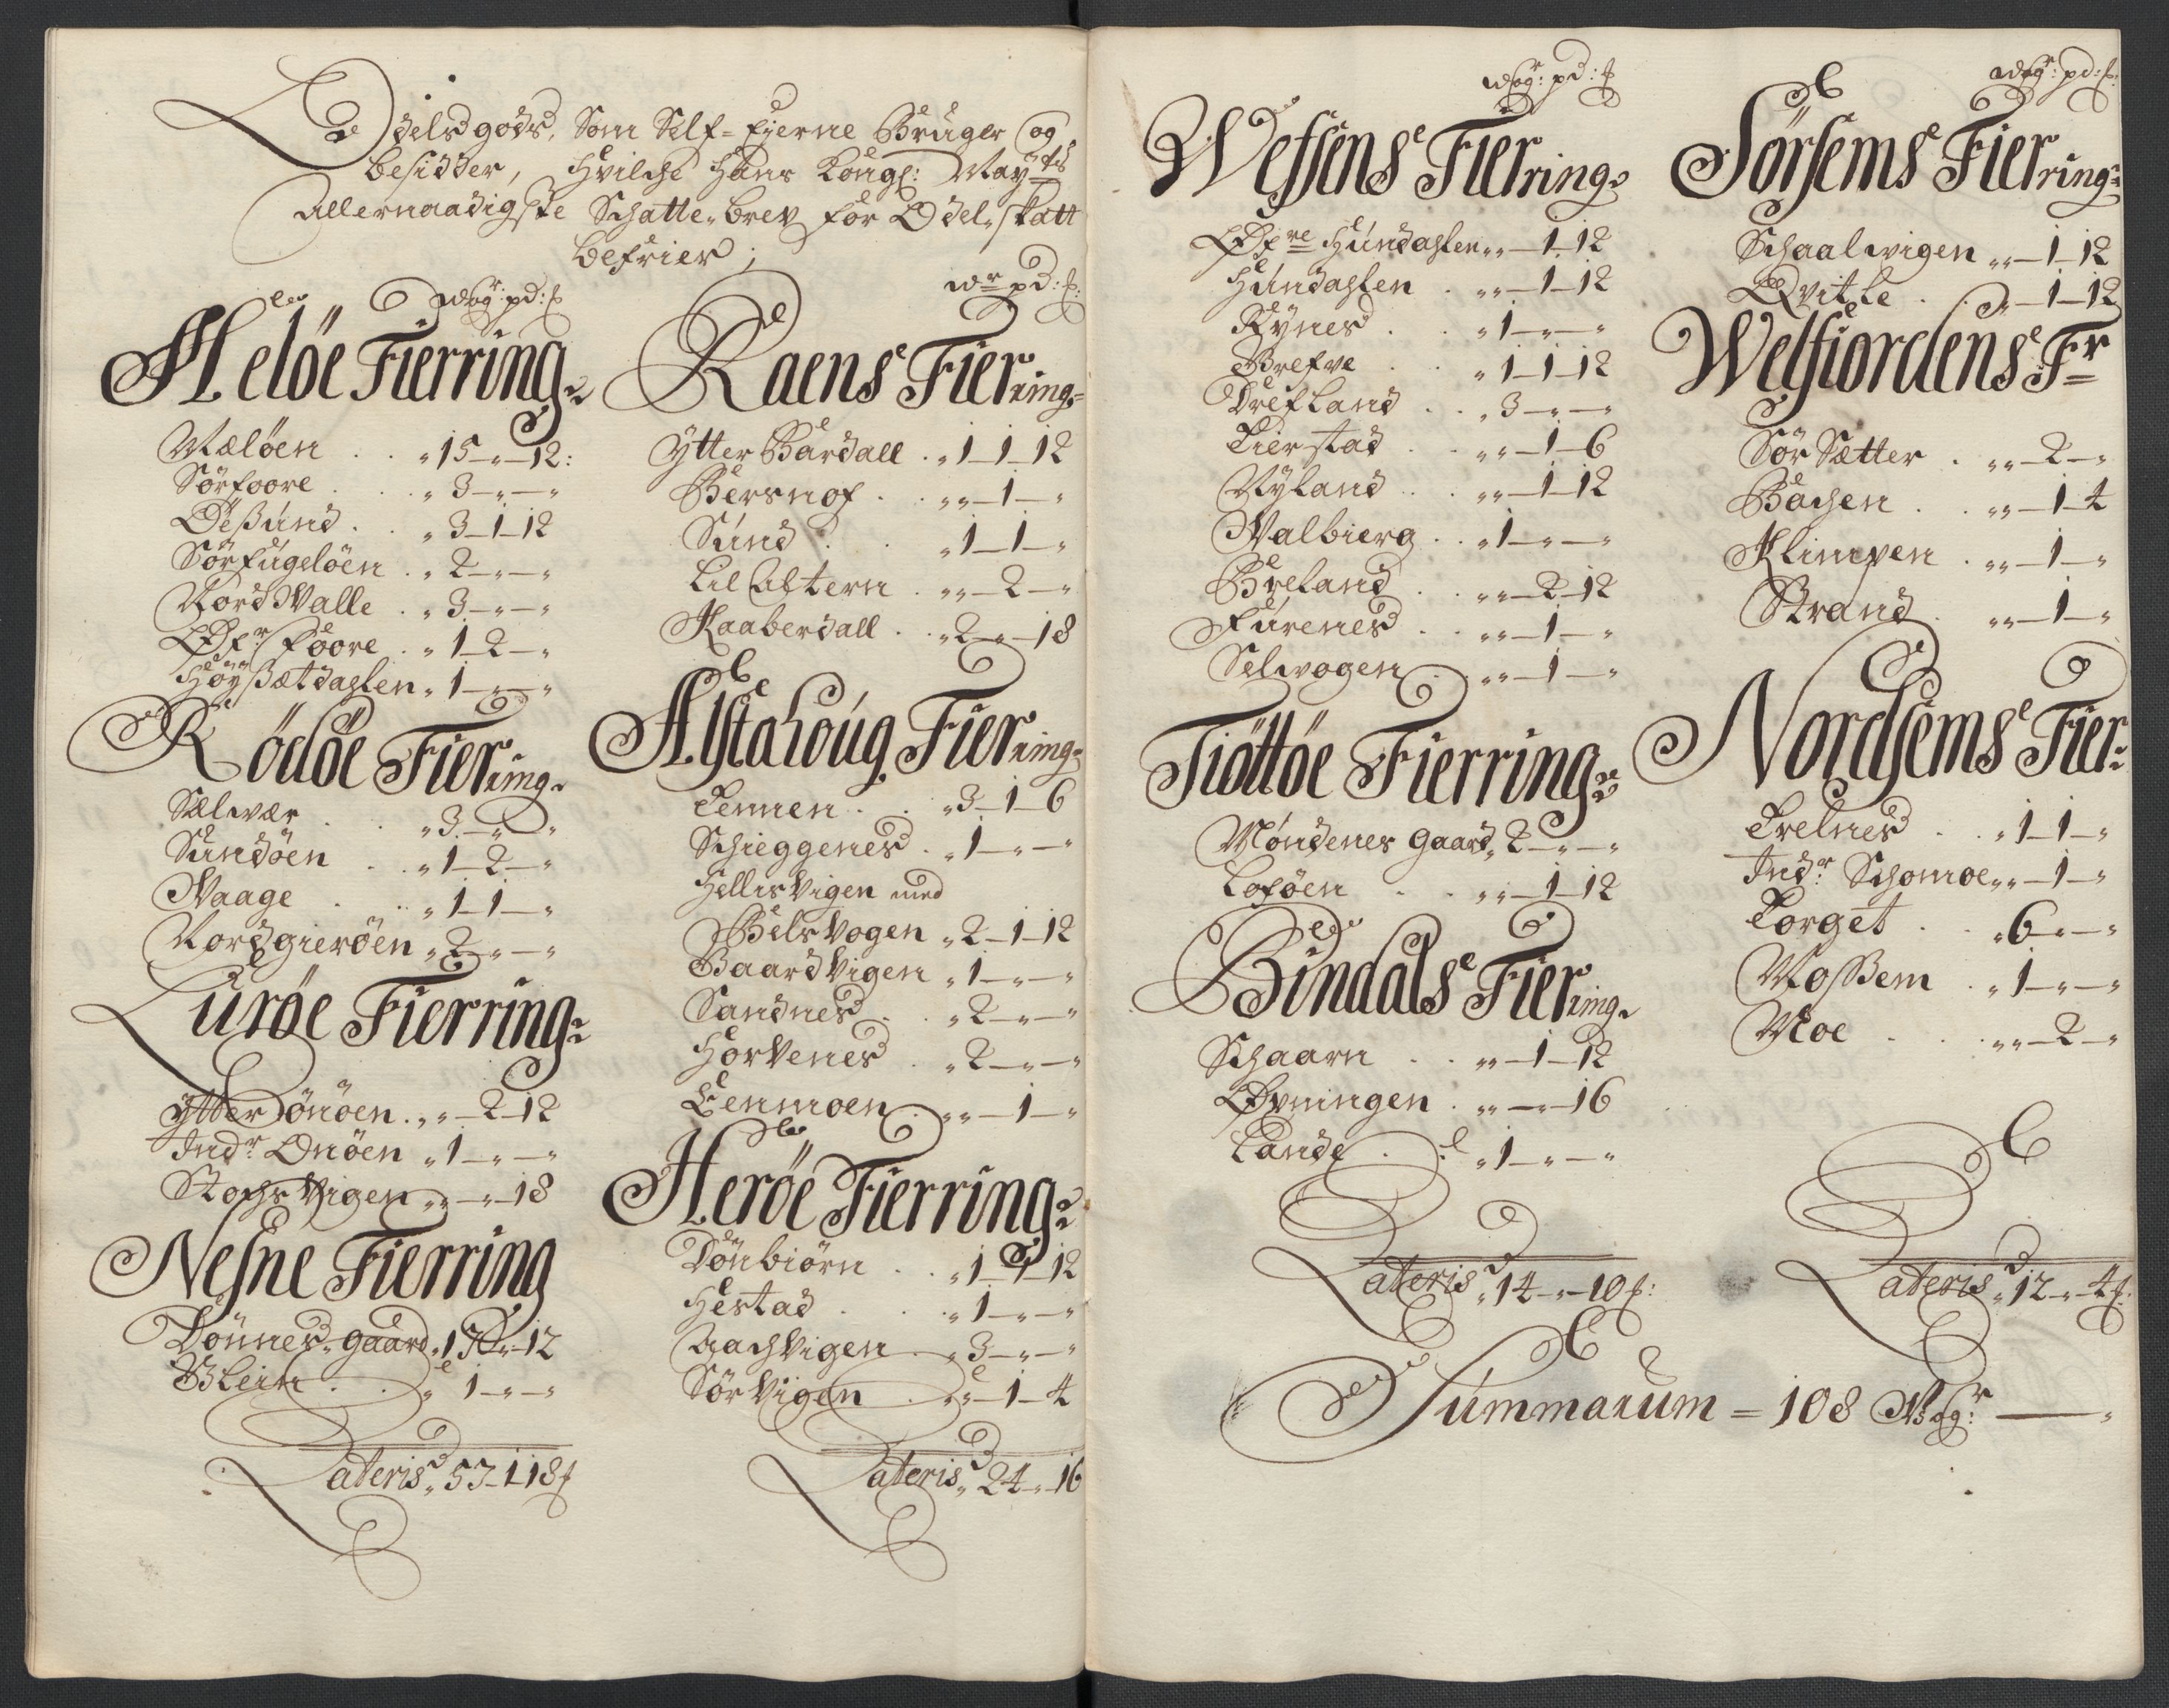 Odelsgods, Som Self-Eyerne Bruger og
besidder, Hvilche Hans Kongl: Mayts
Allernaadigste Schatte-brev for Odel-skatt
befrier;
wog: pd: f
Meløe Fierring
Mæløen . . „ 15 – „ – 12:
Sörfoore . . „ 3 – „ – „
Ößund . . „ 3 – 1 – 12
Sörfugelöen . „ 2 – „ – „
Nord Valle . „ 3 – „ – „
Øfr foore . „ 1 – 2 – „
Höyßætdahlen „ 1 – „ – „
Rödöe Fierring
Sælvær . . „ 3 – „ – „
Sundöen . „ 1 – 2 – „
Waage . . „ 1 – 1 – „
Nordgieröen „ 2 – „ – „
Luröe Fierring
Ytter Onöen . „ „ – 2 – 12
Indr Onöen „ 1 – „ – „
Stochs Vigen „ „ – „ – 18
Nesne Fierring
Dönnes gaard „ 15 – „ – 12
Blein . . „ 1 – „ – „
Lateris „ 53 – 1 18 f
wr pd: f:
Raens Fierring
Ytter Bardall . „ 1 – 1 – 12
Bersnof . „ „ – 1 – „
Sund . . „ 1 – 1 – „
Lil Altern . „ „ – 2 – „
Kaaberdall . „ 2 – „ – 18
Alstahoug Fierring
Tennen . . „ 3 – 1 – 6
Schieggenes . „ 1 – „ – „
Hellisvigen med
Bilsvogen „ 2 – 1 – 12
Baardvigen „ 1 – „ – „
Sandnes . . „ 2 – „ – „
Horvenes . „ 2 – „ – „
Lenmoen . „ „ – 1 – „
Heröe Fierring
Dönbiörn . . „ 1 – 1 – 12
Hestad . . „ 1 – „ – „
Aachvigen . „ 3 – „ – „
Sörvigen . „ „ – 1 – 4
Lateris „ 24 – „ – 16
wog: pd: f
Wefsens Fierring
Øfre Hundahlen „ „ – 1 – 12
Hundahlen . „ „ – 1 – 12
Rynes . . „ 1 – „ – „
Brefve . . „ 1 – 1 – 12
Drefland . . „ 3 – „ – „
Lierstad . . „ „ – 1 – 6
Nyland . . „ „ – 1 – 12
Walbierg . . „ 1 – „ – „
Breland . „ „ – 2 – 12
Furenes . . „ „ – 1 – „
Selvogen . „ „ – 1 – „
Tiöttöe Fierring
Mondenes Gaard „ 2 – „ – „
Loföen . . „ „ – 1 – 12
Bindals Fierring
Schaarn . . „ „ – 1 – 12
Øvningen . „ „ – „ – 16
Lande . . „ 1 – „ – „
Lateris „ 14 – „ – 10 f:
wog: pd: f
Sörsems Fierring
Schaalvigen „ „ – 1 – 12
Qvitle . „ „ – 1 – 12
Welfiordens Fr
Sör Sætter . „ „ – 2 – „
Bachen . . „ „ – 1 – 4
Klimpen . „ „ – 1 – „
Strand . „ „ – 1 – „
Nordsems Fier:
Trelnes . . „ 1 – 1 – „
Indr Schomoe „ „ – 1 – „
Torget . . „ 6 – „ – „
Moßem . „ 1 – „ – „
Moe . . „ „ – 2 – „
Lateris „ 12 – „ – 4 f:
Summarum = 108 Wogr – „